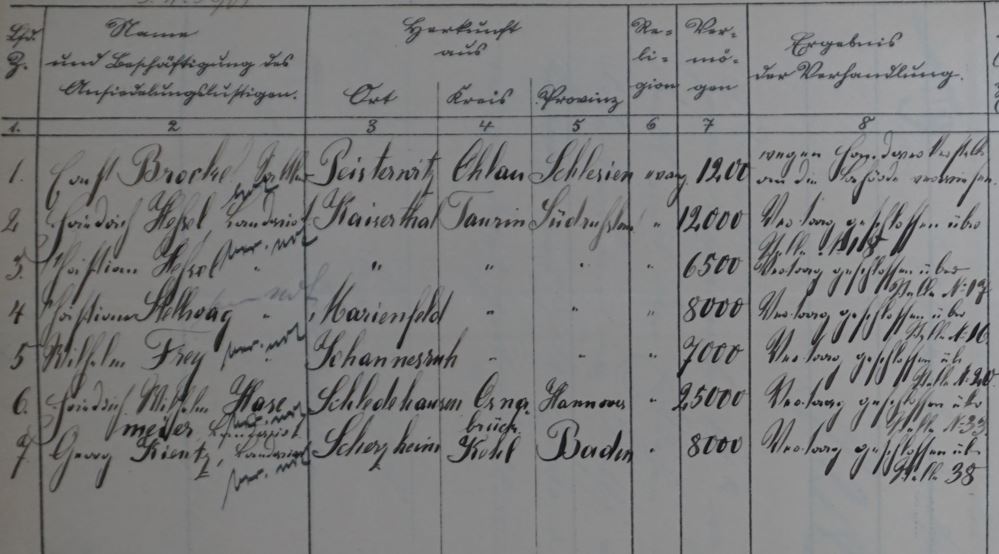 Lfd. Z.
Name und Beschäftigung des Ansiedelungslustigen.
Herkunft aus
Ort Kreis Provinz
Re-li-gion
Ver-mö-gen
Ergebnis der Verhandlung.
1. 2 3 4 5 6 7 8
1. Ernst Brocke Peisterwitz Ohlau Schlesien evang. 1200 wegen Handwerkerstelle
an die Behörde verwiesen.
2 Friedrich Hessel, Landwirt Kaiserthal Taurin Südrußland " 12000 Vertrag geschlossen über
Stelle
3. Christian Hessel " " " " " 6500 Vertrag geschlossen über
Stelle N. 17
4 Christian Hellwag " Marienfeld " " " 8000 Vertrag geschlossen über
Stelle N. 16
5 Wilhelm Frey " Johannesruh " " " 7000 Vertrag geschlossen üb.
Stelle N. 20
6. Friedrich Wilhelm Hase- Schledehausen Osna- Hannover " 25000 Vertrag geschlossen über
meier Landwirt brück Stelle N. 33.
7 Georg Kientz, Landwirt Scherzheim Kehl Baden " 8000 Vertrag geschlossen üb.
Stelle 38